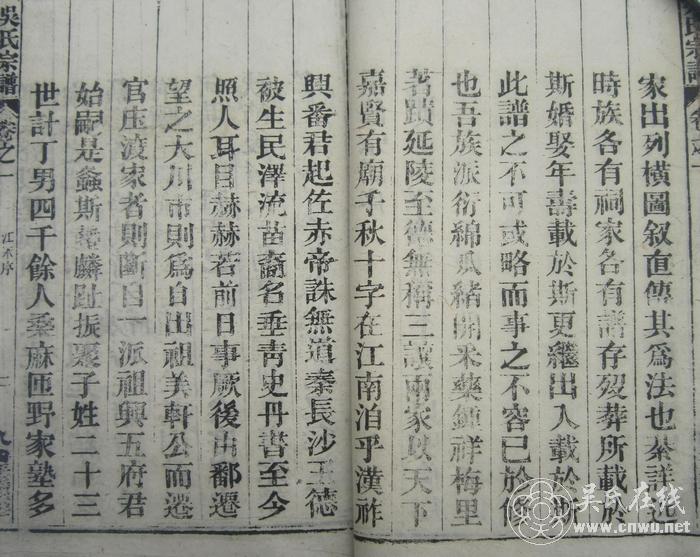 家出列橫圖叙直傳其爲法也綦詳記
時族各有祠家各有譜存歿葬所載於
斯婚娶年壽載於斯更繼出入載於斯
此譜之不可或略而事之不容已於修
也吾族派衍綿瓜緒開采藥鍾祥梅里
著蹟延陵至德無稱三讓兩家以天下
嘉賢有廟子秋十字在江南泊乎漢祚
興番君起佐赤帝誅無道秦長沙王德
被生民澤流苗裔名垂靑史丹書至今
照人耳目赫赫若前日事厥後由鄱遷
望之大川市則爲自出祖美軒公而遷
官庄渡家者則斷自一派祖興五府君
始嗣是螽斯蟄麟趾振聚子姓二十三
世計丁男四千餘人桑麻匝野家塾多
吳氏宗譜
卷之一
吳氏在线
www.cnwu.net